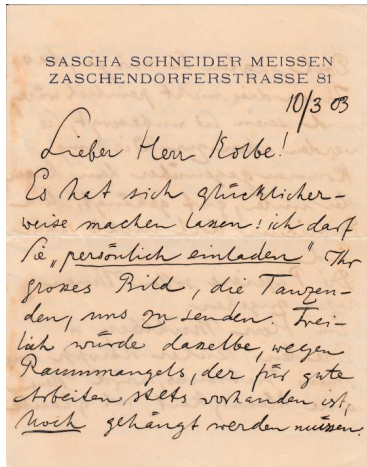 SASCHA SCHNEIDER MEISSEN
ZASCHENDORFERSTRASSE 81
10/3 03
Lieber Herr Kolbe!
Es hat sich glücklicher-
weise machen lassen! ich darf
Sie „persönlich einladen" Ihr
grosses Bild, die Tanzen-
den, uns zu senden. Frei-
lich würde dasselbe, wegen
Raummangels, der für gute
Arbeiten stets vorhanden ist,
hoch gehängt werden müssen.